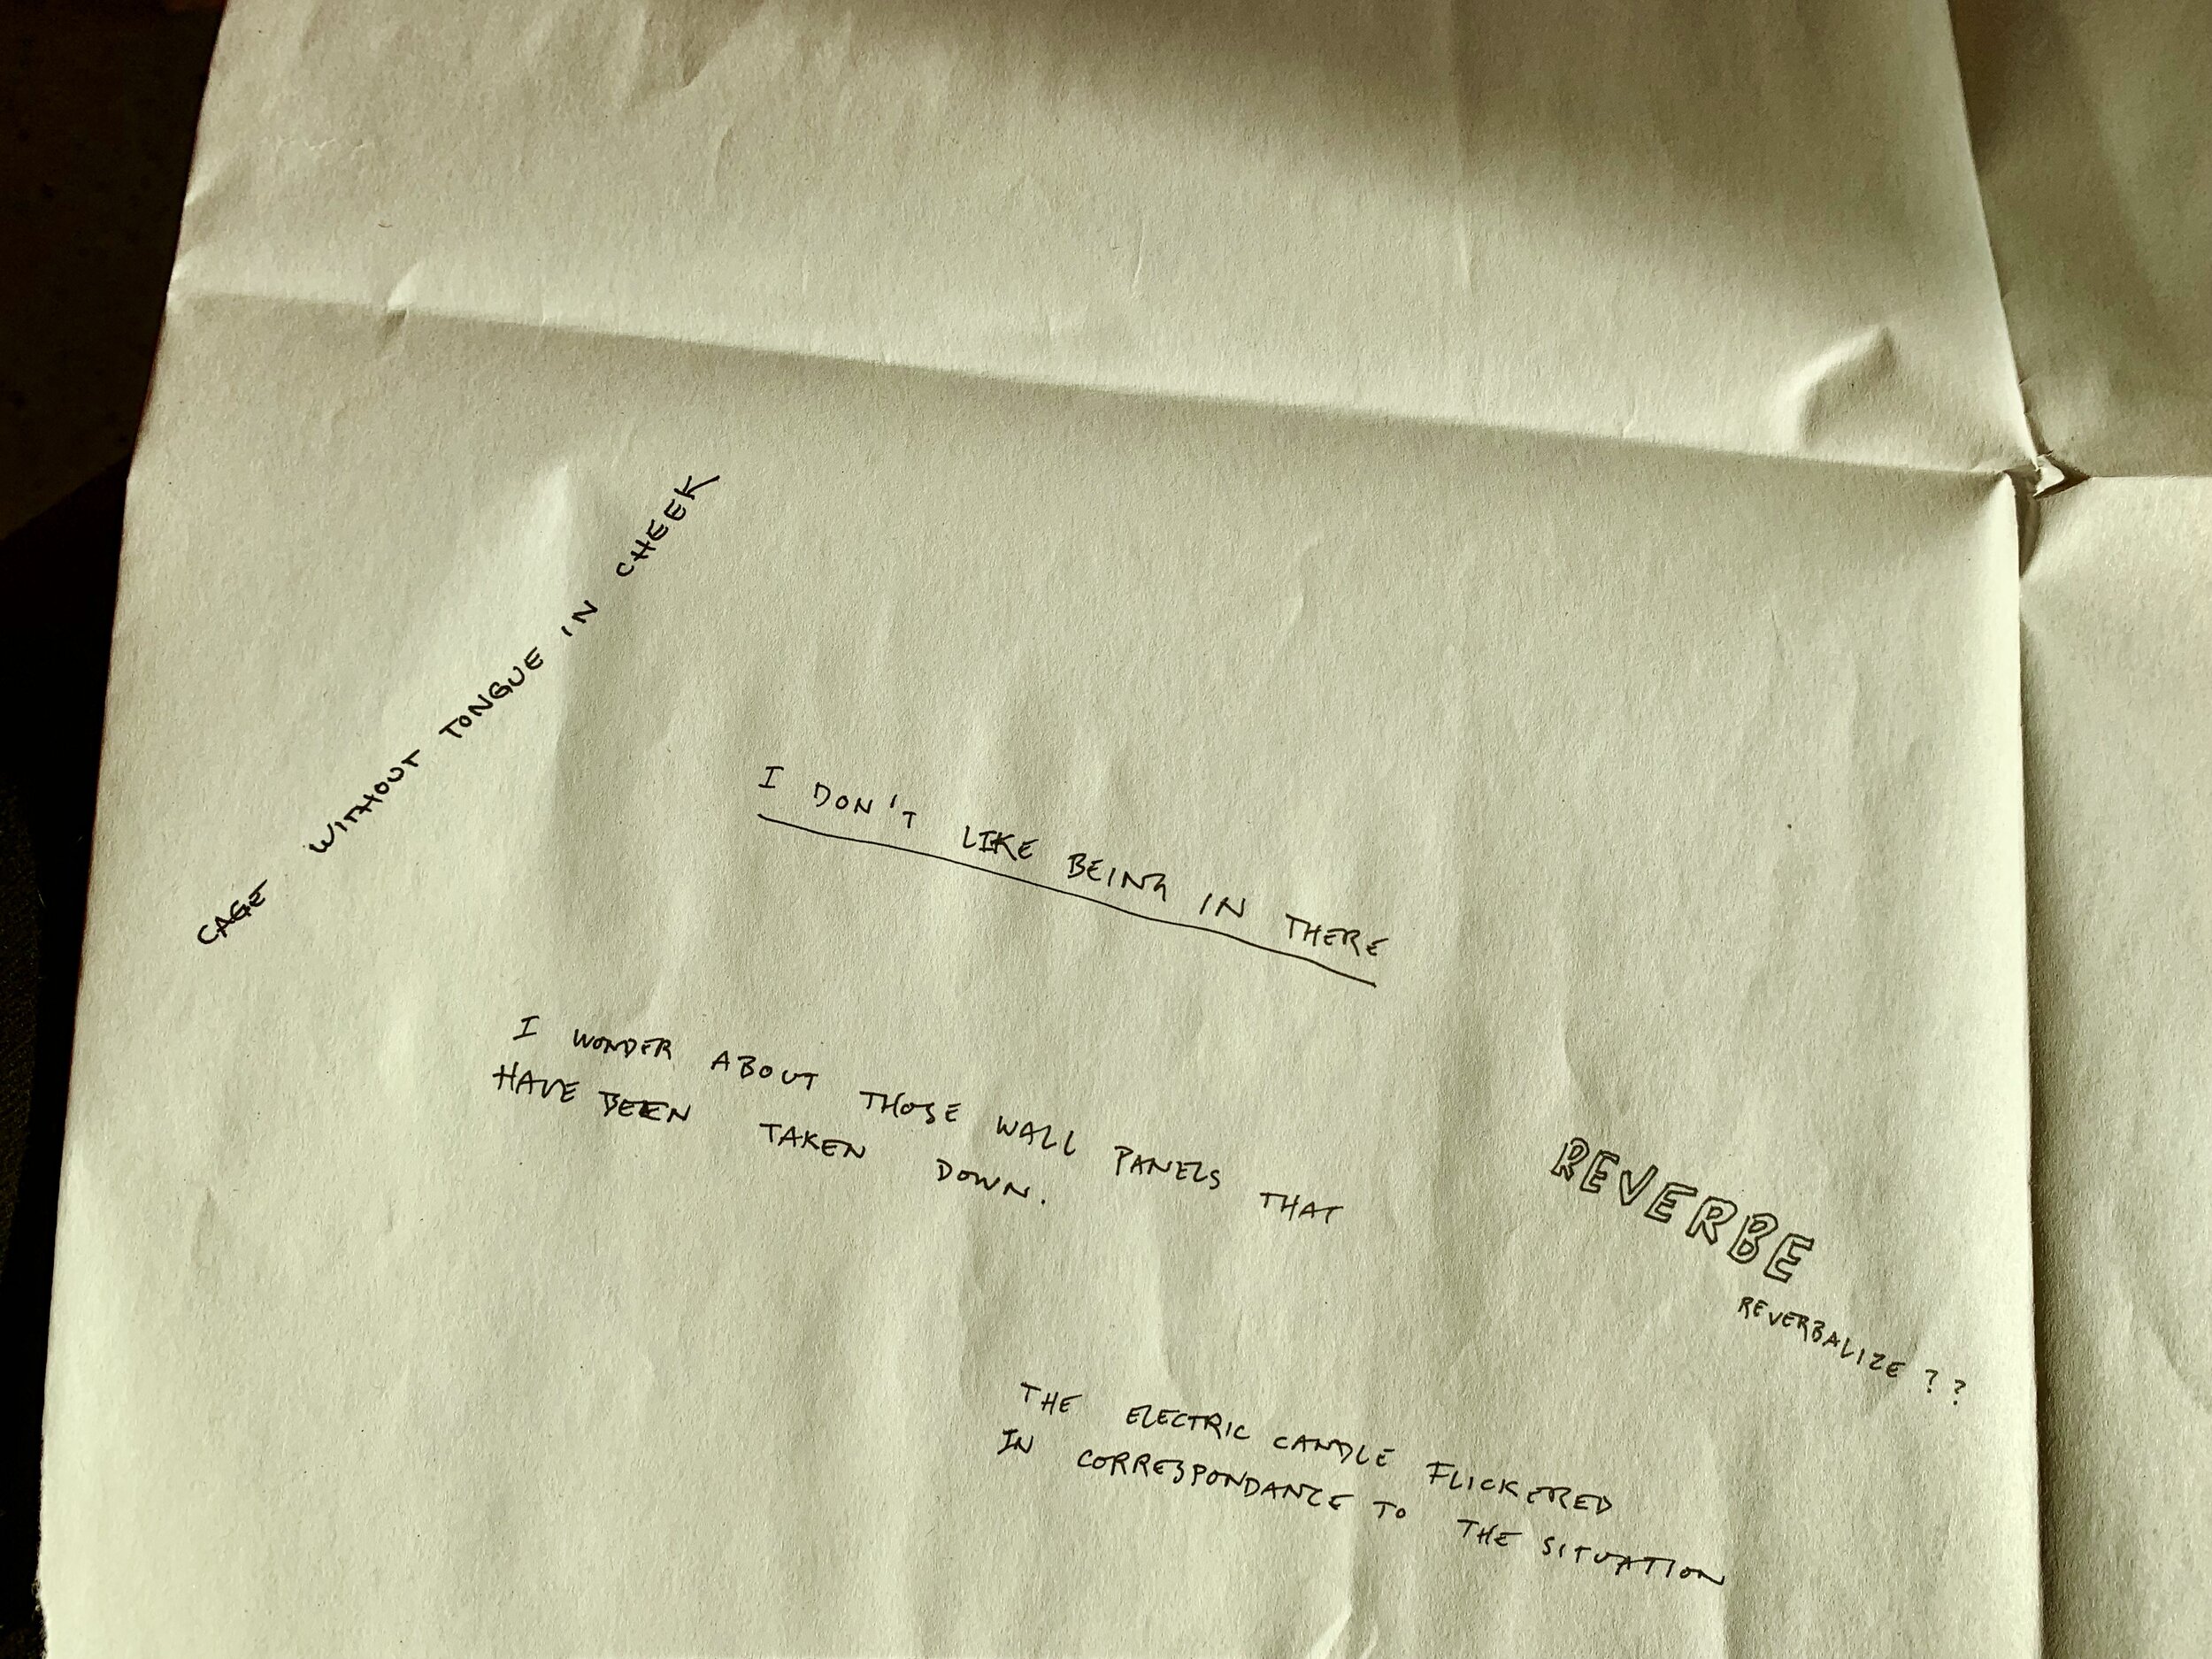 CAGE WITHOUT TONGUE IN CHEEK
I DON'T LIKE BEING IN THERE
I WONDER ABOUT THOSE WALL PANELS THAT
HAVE BEEN TAKEN DOWN.
REVERBE
REVERBALIZE ??
THE ELECTRIC CANDLE FLICKERED
IN CORRESPONDANCE TO THE SITUATION